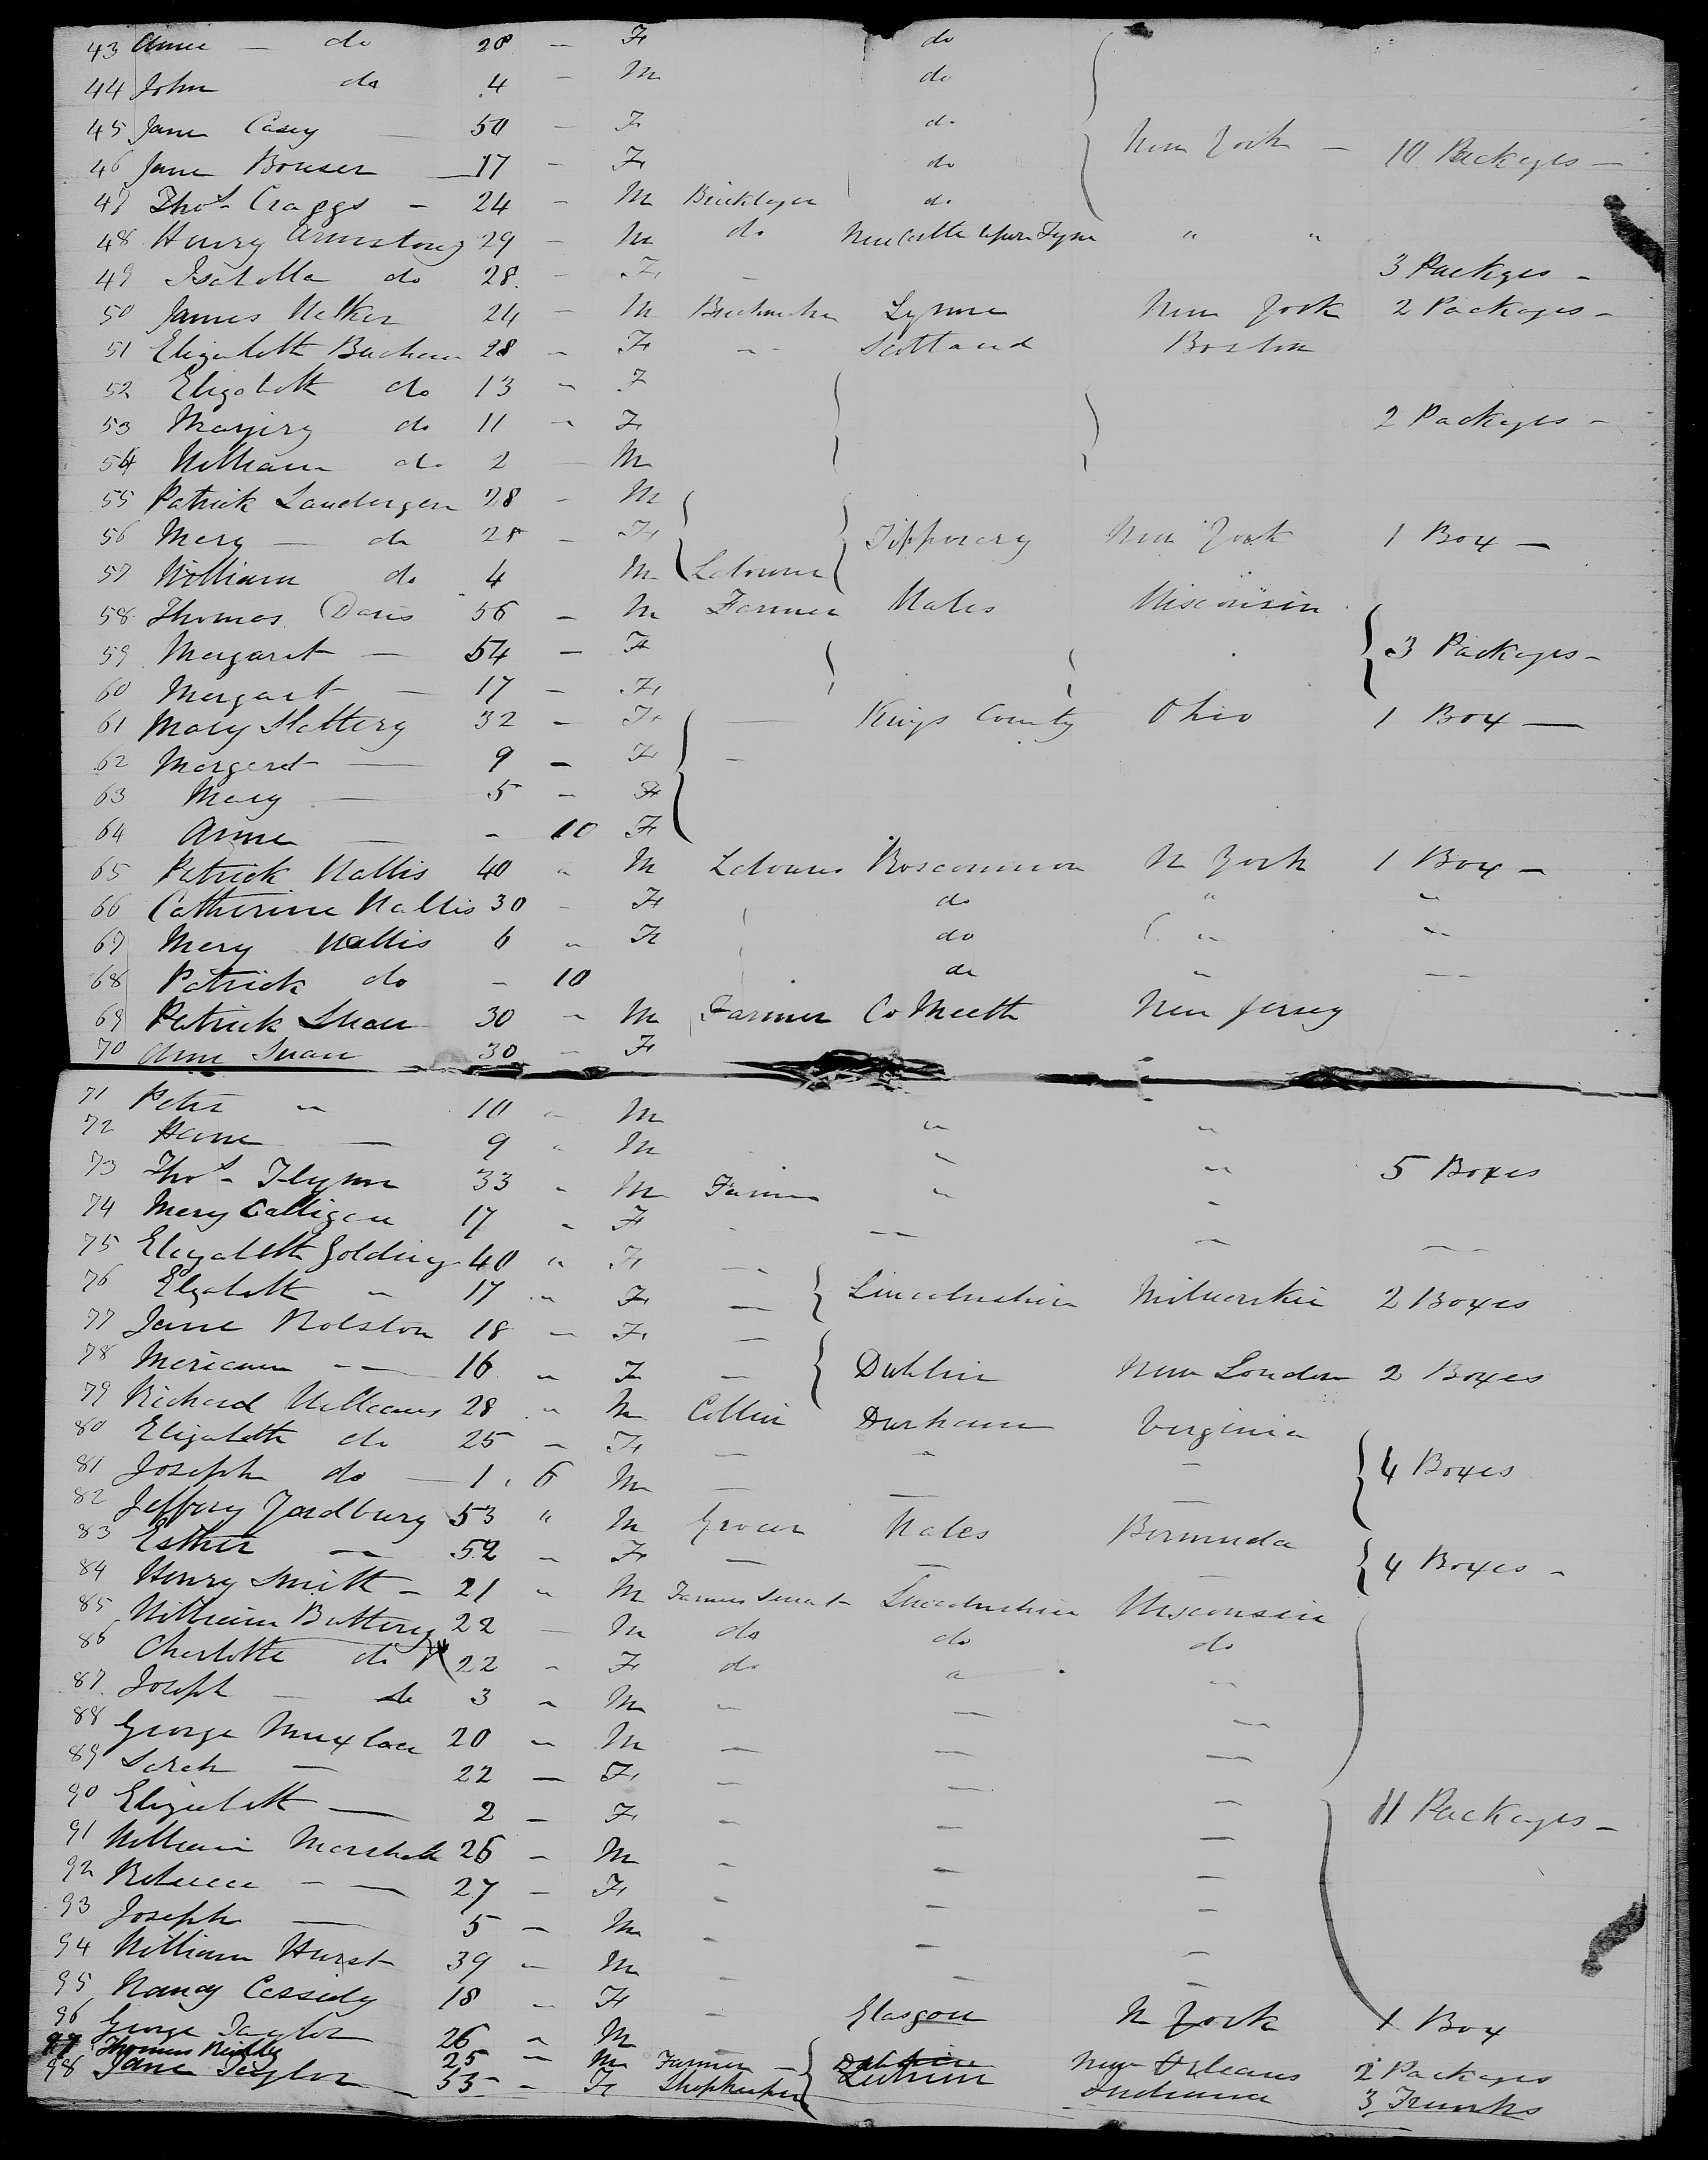 43 Anne — do 28 — F do
44 John do 4 — M do
45 Jane Casey — 50 — F do
46 Jane Bouser — 17 — F do New York — 10 Packages —
47 Thos. Craggs — 24 — M Bricklayer do
48 Henry Armstong 29 — M do New Castle Upon Tyne " "
49 Isabella do 28 — F — 3 Packges —
50 James 24 — M Lynne New York 2 Packages —
51 Elizabeth 28 — F — Scotland Boston
52 Elizabeth do 13 — F
53 do 11 — F 2 Packages —
54 William do 2 — M
55 Patrick Landergen 28 — M
56 Mary — do 28 — F Tipperary New York 1 Box —
57 William do 4 M Labourer
58 Thomas Davis 56 — M Farmer Wales Wisconsin
59 Margaret — 54 — F 3 Packages —
60 Margaret — 17 — F
61 Mary Slattery 32 — F — Kings County Ohio 1 Box —
62 Margaret — 9 — F —
63 Mary — 5 — F
64 Anne — - 10 F
65 Patrick Wallis 40 " M Labourer Roscommon N York 1 Box —
66 Catherine Wallis 30 — F do " "
67 Mary Wallis 6 " F do " "
68 Patrick do - 10 do " —
69 Patrick 30 " M Farmer Co Meath New Jersey
70 Ann 30 — F
71 Peter " 10 " M " "
72 — 9 " M " " 5 Boxes
73 Thos. Flynn 33 " M Farmer " "
74 Mary Calligan 17 " F — —
75 Elizabeth Golding 40 " F —
76 Elizabeth " 17 " F — Lincolnshire Milwaukie 2 Boxes
77 Jane Rolston 18 — F —
78 — 16 " F — Dublin New London 2 Boxes
79 Richard Williams 28 " M Collier Durham Virginia
80 Elizabeth do 25 — F — " — 4 Boxes
81 Joseph do — 1 . 6 M — — —
82 Jeffrey 53 " M Grocer Wales Bermuda
83 Esther — 52 — F — — — 4 Boxes —
84 Henry Smith — 21 " M Farmer Servant Lincolnshire Wisconsin
85 William Buttery 22 — M do do do
86 Charlotte do 22 — F do " "
87 Joseph — do 3 — M " — —
88 George 20 " M — — —
89 Sarah — 22 — F — — —
90 Elizabeth — 2 — F — — — 11 Packages —
91 William Marshall 26 — M — — —
92 Rebecca — 27 — F — — —
93 Joseph — 5 — M — — —
94 William Hurst 39 — M — — —
95 Nancy Cassidy 18 — F — Glasgow N York 1 Box
96 George Taylor 26 " M
97 Thomas 25 — M Farmer — New Orleans 2 Packages
98 Jane Taylor — 35 — F Shopkeeper Indiana 3 Trunks